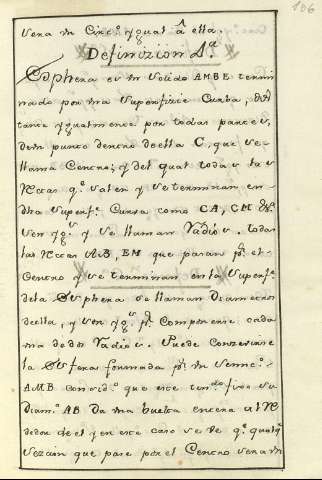 106
vera un Circ.º ygual â ella.
Definizion 4.ª
Sphera es un Solido AMBE termi
nado por una Superfizie Curba, dis
tante ygualmente por todas partes,
de un punto dentro de ella C, que se
llama Centro; y del qual todas las
Rectas q.º salen y se terminan en
dha Superf.ª Curva como CA, CM &.ª
son yg.s y se llaman Radios. todas
las Rectas AB, EM que pasan p.r el
Centro y se terminan en la Superf.ª
de la Sphera se llaman Diametros
de ella, y son yg.s p.r Componerse cada
uno de dos Radios. Puede conzevirse
la Sfera formada p.r un Semic.º
AMB conzid.º que este ten.do fixo su
Diam.º AB Da una buelta entera al Re
dedor de el y en este caso se ve q.º qualq.r
Sezcion que pase por el Centro sera un